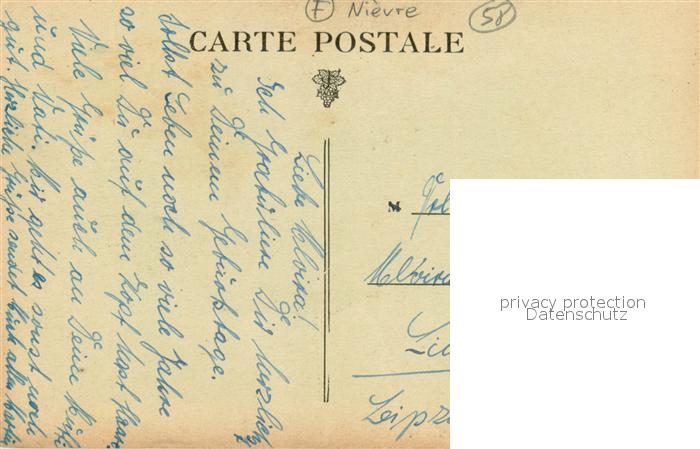 F Nièvre 58
CARTE POSTALE
Liebe Elvira!
Ich gratuliere Dir herzlich
zu Deinem Geburtstage.
sollst Leben noch so viele Jahre
so viel Du auf dem Kopf hast Haare
Viele Grüße auch an Deine
und Vati. Mir geht es sonst noch
gut. Herzliche Grüße sendet
M
Elvira
Leipz
privacy protection
Datenschutz